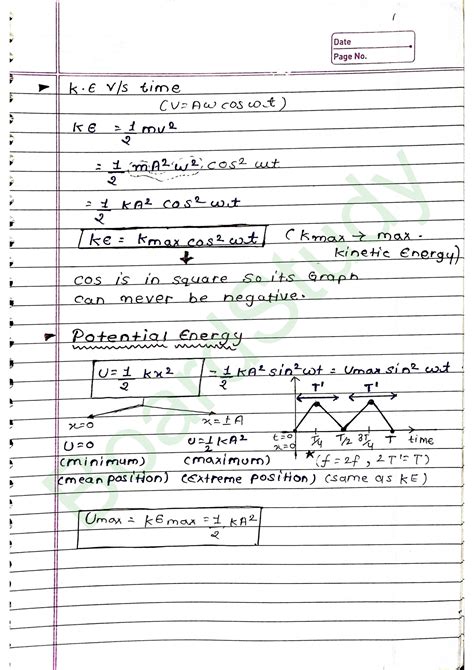 1
Date
Page No.
► K.E V/s time
(V=Aω cos ω.t)
KE = 1/2 mv²
= 1/2 mA²ω² cos² ωt
= 1/2 KA² cos² ω.t
KE = Kmax cos² ω.t (Kmax → max. kinetic Energy)
cos is in square so its Graph
can never be negative.
► Potential Energy
U = 1/2 Kx² - 1/2 KA² sin² ωt = Umax sin² ωt
T' T'
x=0 x=±A
t=0 x=0 T/4 T/2 3T/4 T time
U=0 U=1/2 KA² * (f=2f, 2T'=T)
(minimum) (maximum)
(mean position) (Extreme position) (same as KE)
Umax = KE max = 1/2 KA²
BoardStudy